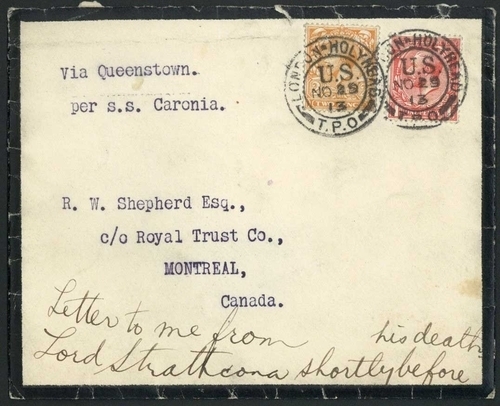 LONDON-HOLYHEAD
U.S.
NO 29
13
T.P.O
LONDON-HOLYHEAD
U.S.
NO 29
13
T.P.O
Via Queenstown.
per s.s. Caronia.
R. W. Shepherd Esq.,
c/o Royal Trust Co.,
MONTREAL,
Canada.
Letter to me from his death
Lord Strathcona shortly before